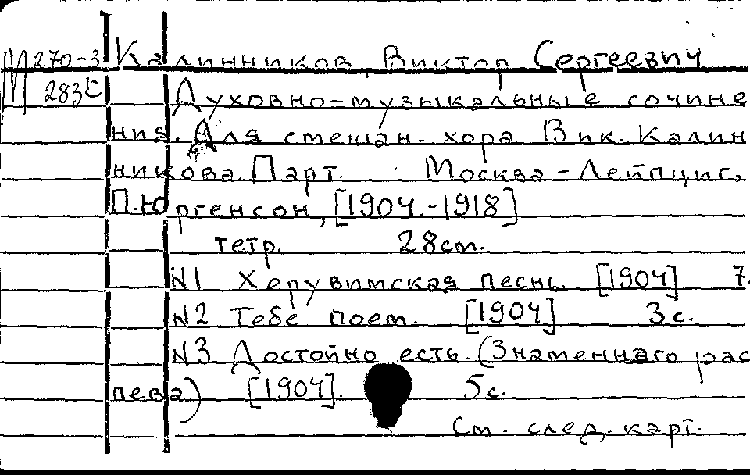 М 270-3 Калинников, Виктор Сергеевич
283 Духовно-музыкальные сочине
ния. Для смешан. хора Вик. Калин
никова. Парт. Москва-Лейпциг,
П. Юргенсон, [1904.-1918]
тетр. 28см.
N1 Херувимская песнь. [1904] 7.
N2 Тебе поем. [1904] 3с.
N3 Достойно есть. (Знаменнаго рас
пева) [1904]. 5с.
См. след. карт.